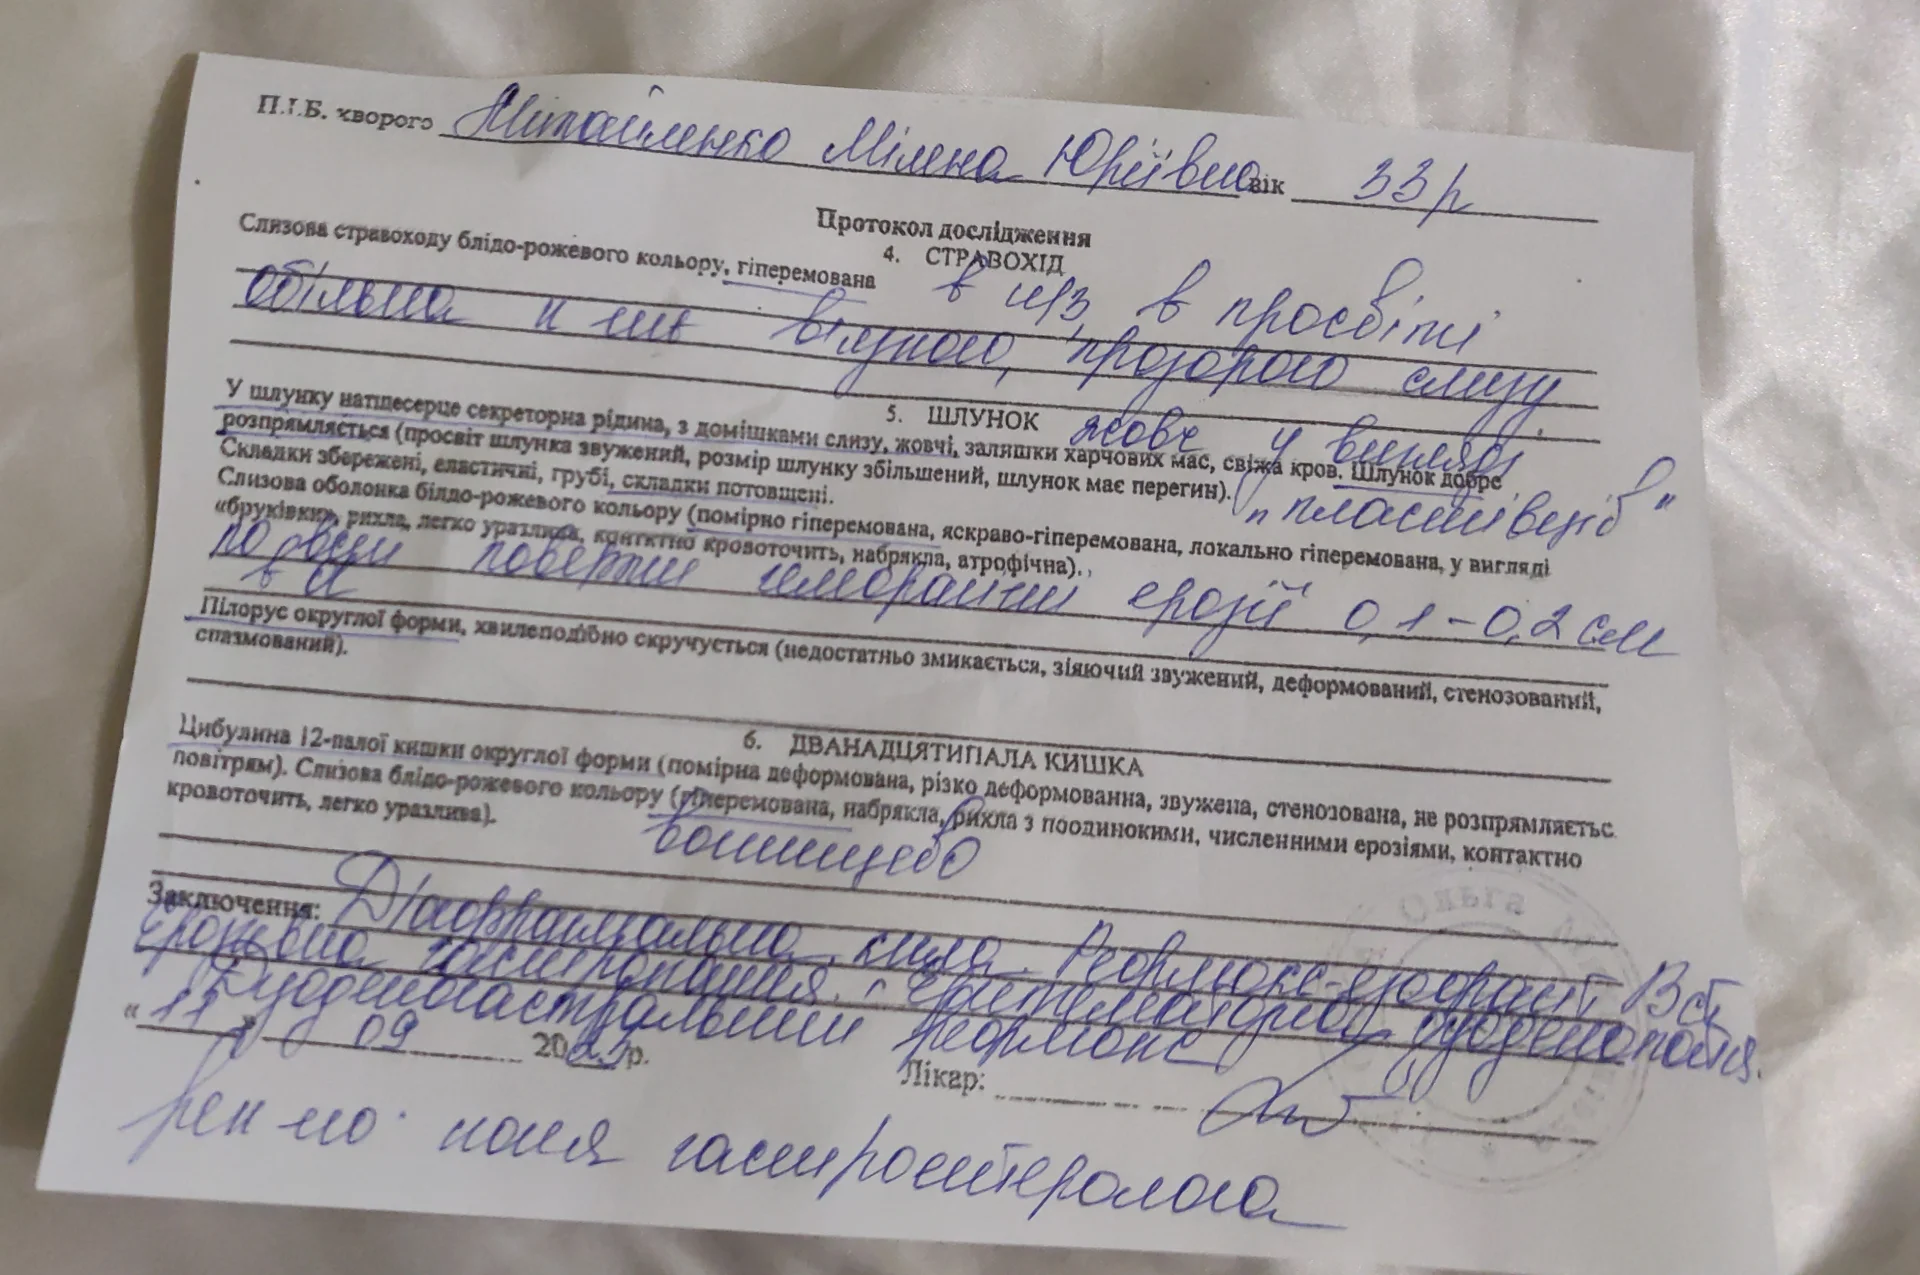 П.І.Б. хворого Михайленко Мілена Юріївна вік 33 р
Протокол дослідження
4. СТРАВОХІД
Слизова стравоходу блідо-рожевого кольору, гіперемована в н/з, в просвіті
обільна к-ть білого, прозорого слизу
5. ШЛУНОК жовч у вигляді
У шлунку натщесерце секреторна рідина, з домішками слизу, жовчі, заляшки харчових мас, свіжа кров. Шлунок добре
розпрямляється (просвіт шлунка звужений, розмір шлунку збільшений, шлунок має перегин). "пластівців"
Складки збережені, еластичні, грубі, складки потовщені.
Слизова оболонка білдо-рожевого кольору (помірно гіперемована, яскраво-гіперемована, локально гіперемована, у вигляді
«бруківки», рихла, легко уразлива, контктно кровоточить, набрякла, атрофічна).
по всій поверхні геморагічні ерозії 0,1-0,2 см
Пілорус округлої форми, хвилеподібно скручується (недостатньо змикається, зіяючий звужений, деформований, стенозований,
спазмований).
6. ДВАНАДЦЯТИПАЛА КИШКА
Цибулина 12-палої кишки округлої форми (помірна деформована, різко деформованна, звужена, стенозована, не розпрямляєтьс
повітрям). Слизова блідо-рожевого кольору (гіперемована, набрякла, рихла з поодинокими, численними ерозіями, контактно
кровоточить, легко уразлива).
вогнищево
Заключення: Діафрагмальна кила. Рефлюкс-езофагіт В ст
Ерозивна гастропатія. Еритематозна дуоденопатія.
Дуоденогастральний рефлюкс
« 11 » 09 20 р.
Лікар:
рек-но: конс гастроентеролога
Ольга